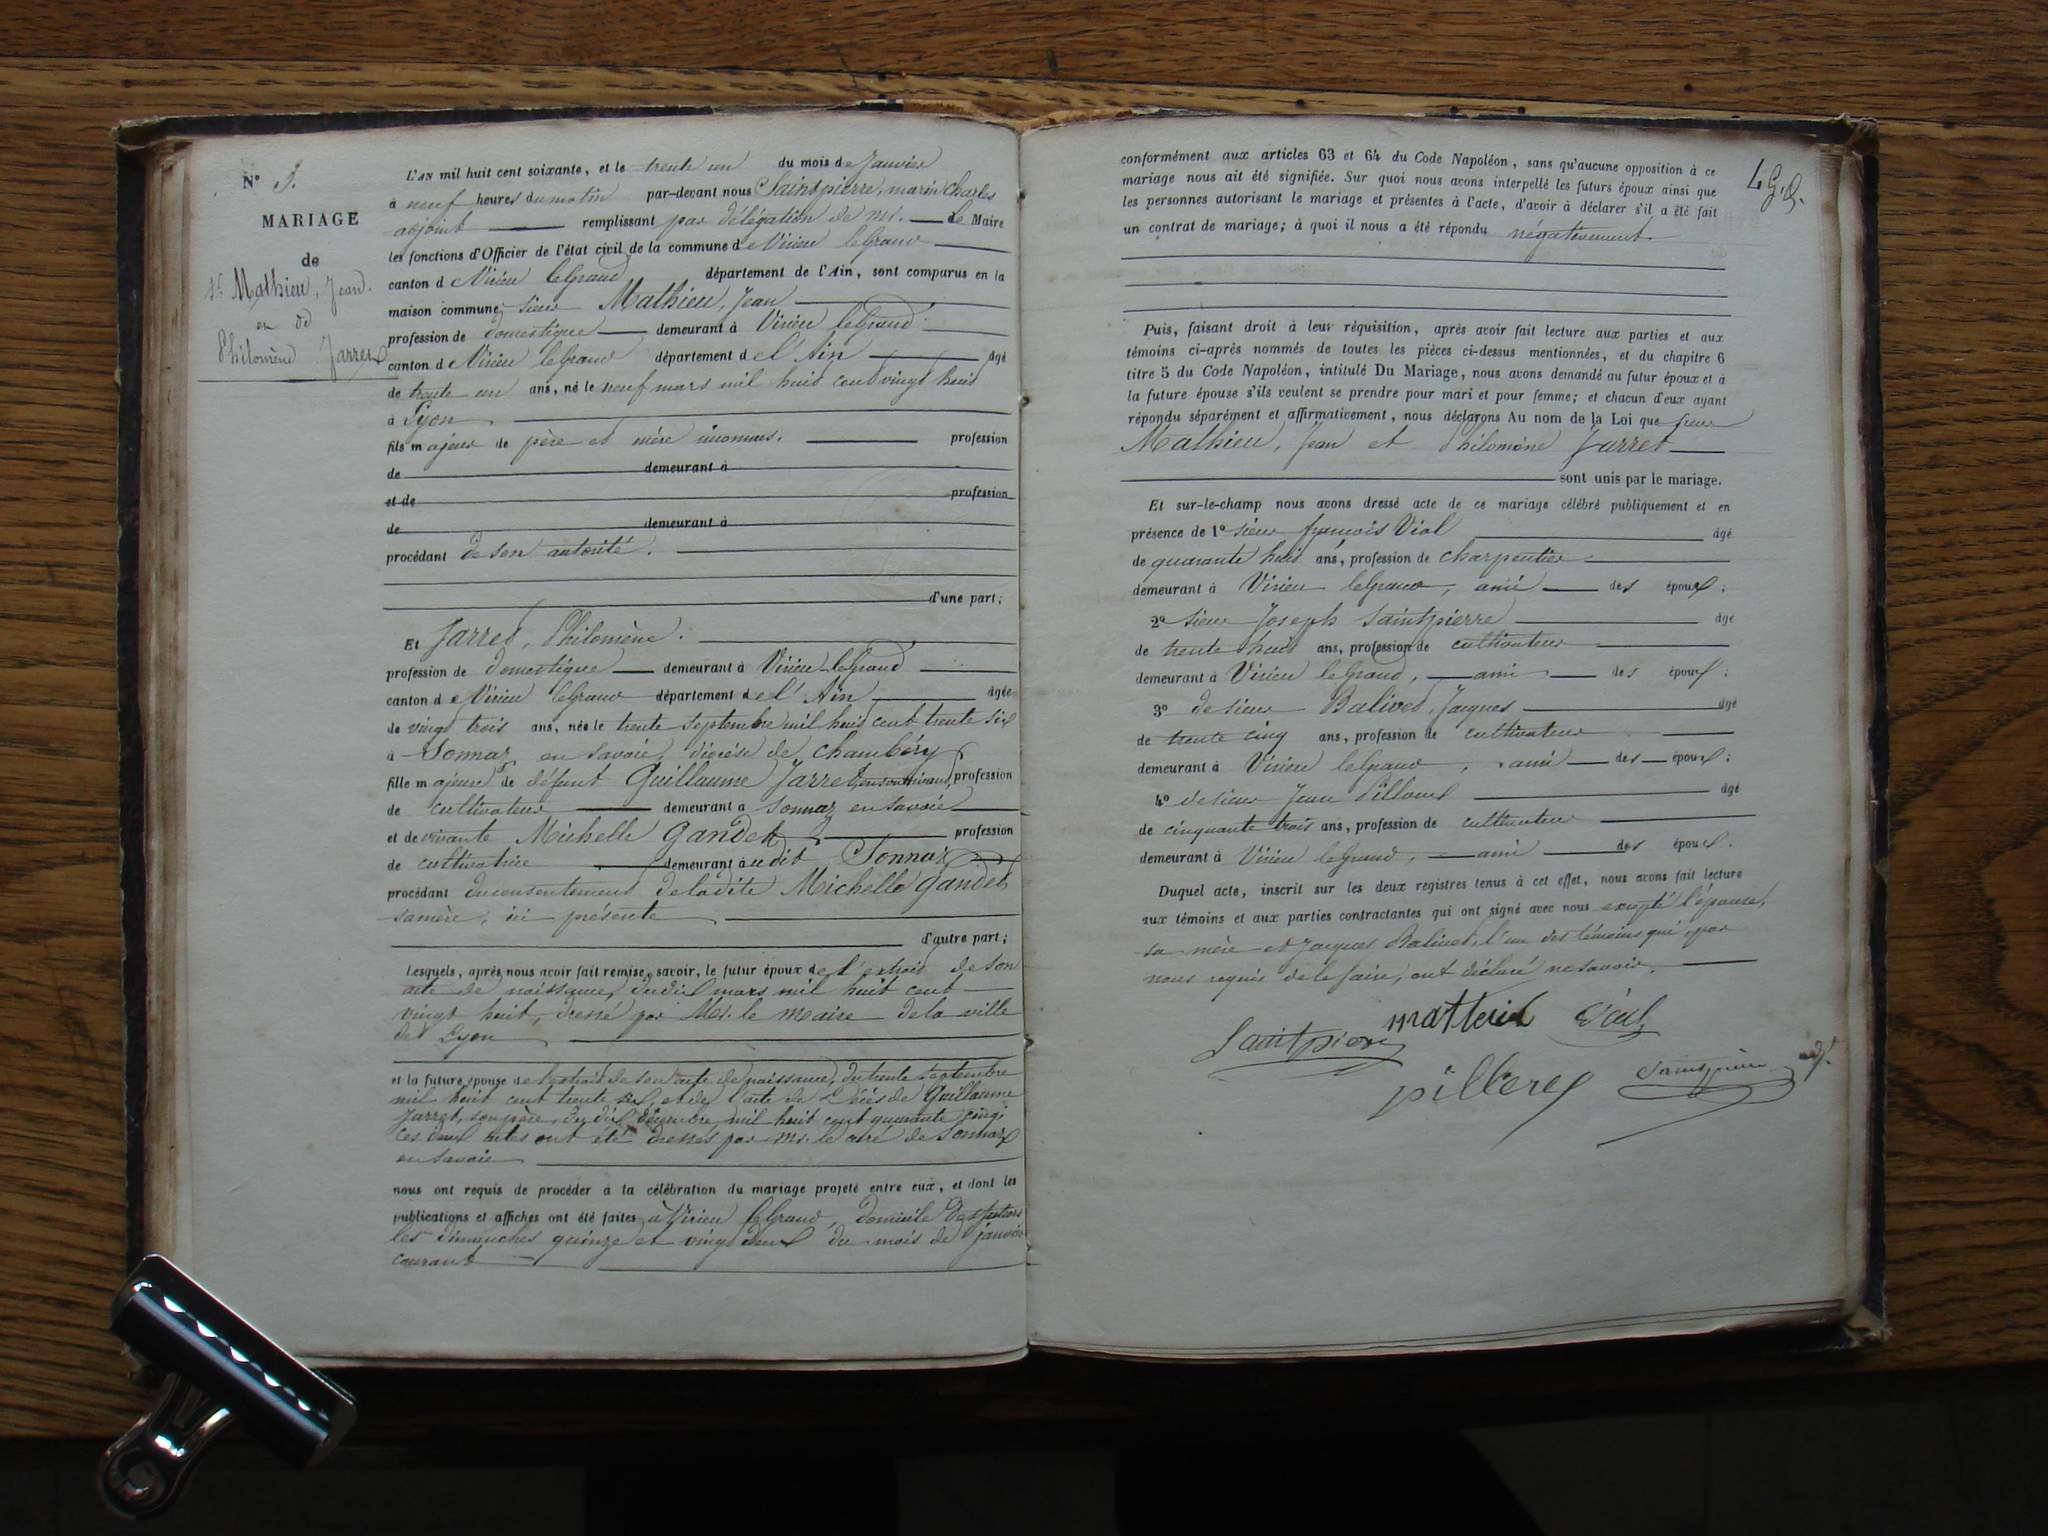 N° 3.
MARIAGE
de
Sr Mathieu, Jean.
et de
Philomène Jarret
L'AN mil huit cent soixante, et le trente un du mois de Janvier
à neuf heures du matin par-devant nous Saintpierre, marin Charles
adjoint remplissant par délégation de Mr. le Maire
les fonctions d'Officier de l'état civil de la commune de Virieu leGrand
canton de Virieu leGrand département de l'Ain, sont comparus en la
maison commune, sieur Mathieu, Jean
profession de domestique demeurant à Virieu leGrand
canton de Virieu leGrand département de l'Ain âgé
de trente un ans, né le neuf mars mil huit cent vingt huit
à Lyon
fils majeur de père et mère inconnus. profession
de demeurant à
et de profession
de demeurant à
procédant de son autorité.
d'une part;
Et Jarret, Philomène.
profession de domestique demeurant à Virieu leGrand
canton de Virieu leGrand département de l'Ain âgée
de vingt trois ans, née le trente septembre mil huit cent trente six
à Sonnaz en Savoie, diocèse de Chambéry
fille majeure de défunt Guillaume Jarret, en son vivant, profession
de cultivateur demeurant à Sonnaz en Savoie
et de vivante Michelle Gandet profession
de cultivatrice demeurant à udit Sonnaz
procédant du consentement de ladite Michelle Gandet
sa mère, ici présente
d'autre part;
Lesquels, après nous avoir fait remise, savoir, le futur époux de l'extrait de son
acte de naissance, du dix mars mil huit cent
vingt huit, dressé par Mr. le maire de la ville
de Lyon
et la future épouse de l'extrait de son acte de naissance, du trente septembre
mil huit cent trente six, et de l'acte de décès de Guillaume
Jarret, son père, du dix décembre mil huit cent quarante cinq;
ces deux actes ont été dressés par Mr. le curé de Sonnaz
en Savoie
nous ont requis de procéder à la célébration du mariage projeté entre eux, et dont les
publications et affiches ont été faites à Virieu leGrand, domicile des futurs
les dimanches quinze et vingt deux du mois de janvier
courant
conformément aux articles 63 et 64 du Code Napoléon, sans qu'aucune opposition à ce
mariage nous ait été signifiée. Sur quoi nous avons interpellé les futurs époux ainsi que
les personnes autorisant le mariage et présentes à l'acte, d'avoir à déclarer s'il a été fait
un contrat de mariage; à quoi il nous a été répondu négativement.
Puis, faisant droit à leur réquisition, après avoir fait lecture aux parties et aux
témoins ci-après nommés de toutes les pièces ci-dessus mentionnées, et du chapitre 6
titre 5 du Code Napoléon, intitulé Du Mariage, nous avons demandé au futur époux et à
la future épouse s'ils veulent se prendre pour mari et pour femme; et chacun d'eux ayant
répondu séparément et affirmativement, nous déclarons Au nom de la Loi que sieur
Mathieu, Jean et Philomène Jarret
sont unis par le mariage.
Et sur-le-champ nous avons dressé acte de ce mariage célébré publiquement et en
présence de 1° sieur françois Viol âgé
de quarante huit ans, profession de charpentier
demeurant à Virieu leGrand, ami des époux;
2° sieur Joseph Saintpierre âgé
de trente huit ans, profession de cultivateur
demeurant à Virieu leGrand, ami des époux;
3° de sieur Balivet, Jacques âgé
de trente cinq ans, profession de cultivateur
demeurant à Virieu leGrand, ami des époux;
4° de sieur Jean Pilloux âgé
de cinquante trois ans, profession de cultivateur
demeurant à Virieu leGrand, ami des époux.
Duquel acte, inscrit sur les deux registres tenus à cet effet, nous avons fait lecture
aux témoins et aux parties contractantes qui ont signé avec nous excepté l'épouse,
sa mère et Jacques Balivet, l'un des témoins qui, par
nous requis de le faire, ont déclaré ne savoir.
Saintpierre